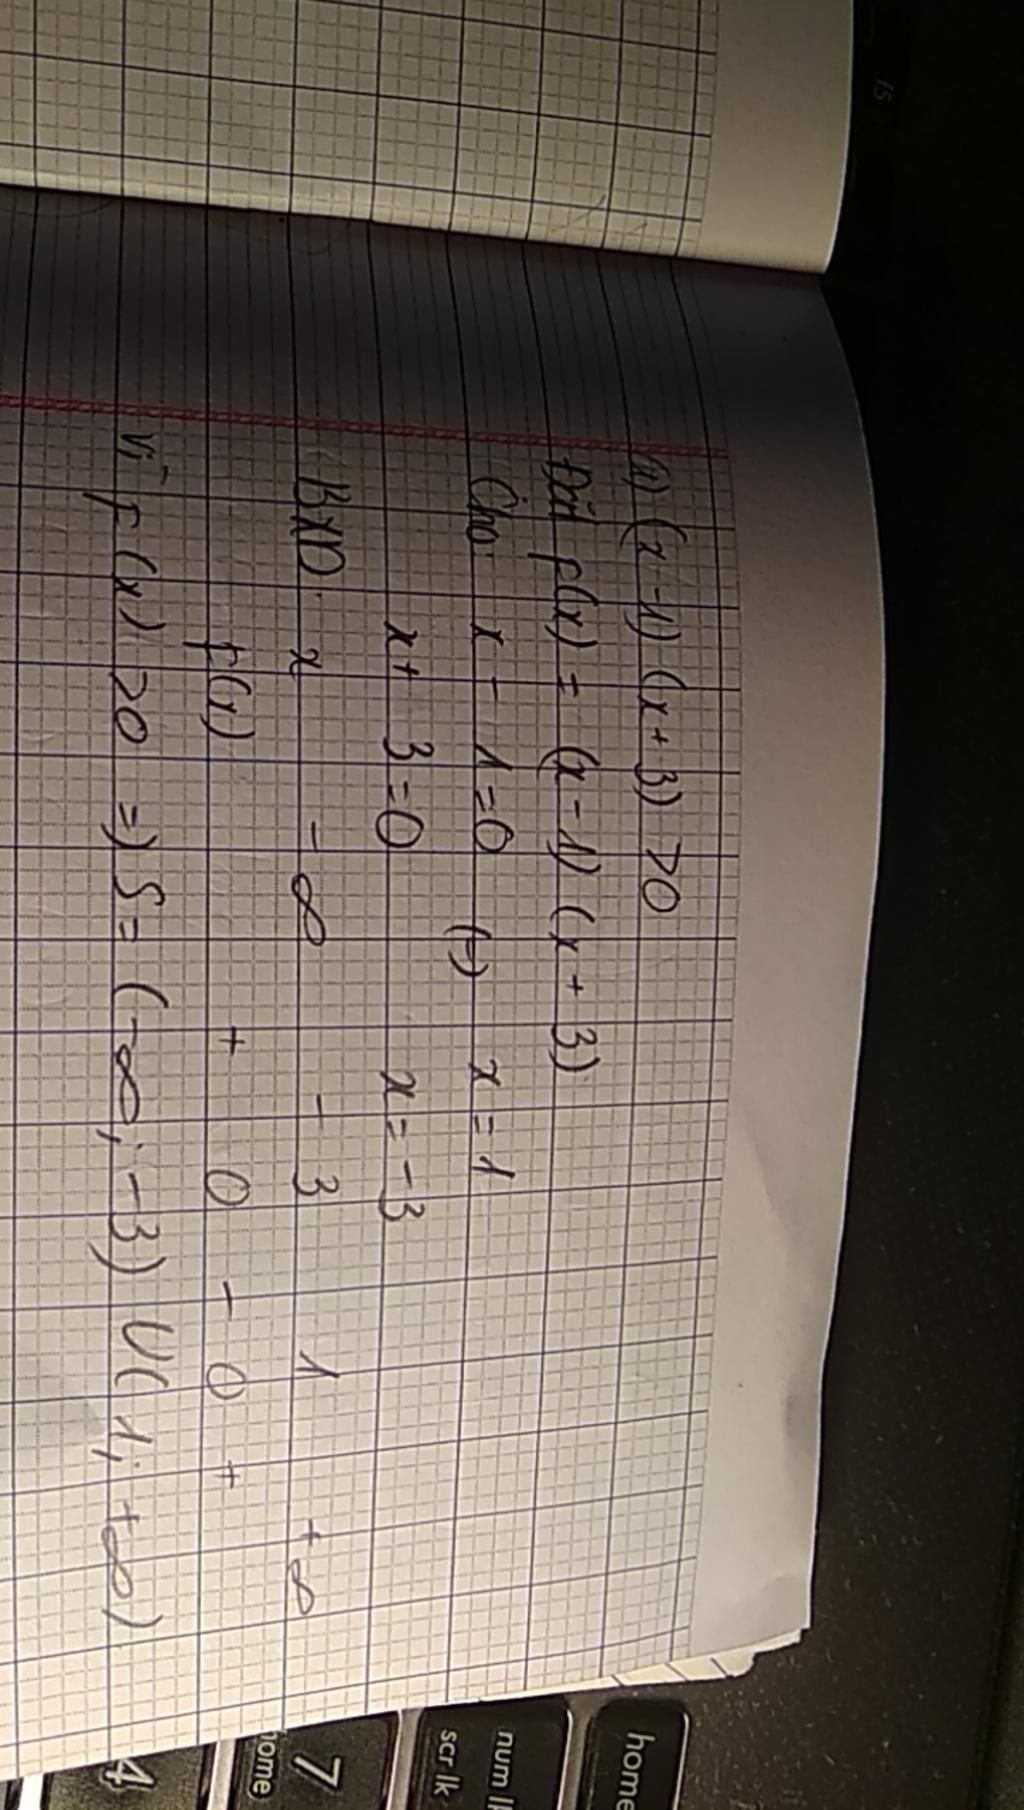 a) (x-1)(x+3) >0
Đặt f(x) = (x-1)(x+3)
Cho: x - 1 =0 (-) x = 1
x+ 3 =0 x = -3
BXD x - ∞ - 3 1 + ∞
f(x) + 0 - 0 +
Vì f(x) >0 =) S = (-∞; -3) U (1; +∞)
home
num l
scr lk
7
home
4
15